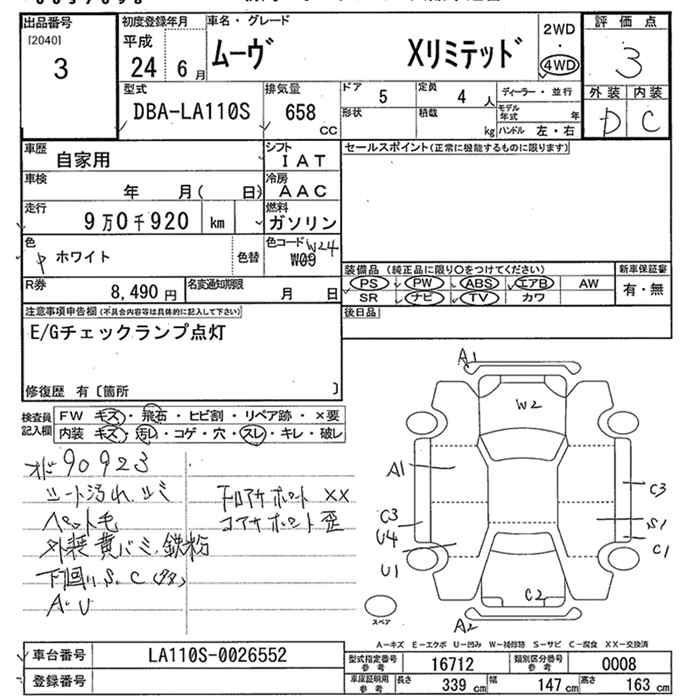 出品番号 初度登録年月 車名・グレード 2WD 評価点
[2040] 平成 ムーヴ Xリミテッド 4WD 3
3 24年 6月
型式 排気量 ドア 5 定員 4人 ディーラー・並行 外装 内装
DBA-LA110S 658 CC 形状 積載 kg モデル年式 年 D C
ハンドル 左・右
車歴 自家用 シフト IAT セールスポイント(正常に機能するものに限ります)
車検 年 月( 日) 冷房 AAC
走行 9万0千920 km 燃料 ガソリン
色 ホワイト 色替 色コード W09 W24
装備品 (純正品に限り○をつけてください) 新車保証書
PS PW ABS エアB AW 有・無
SR ナビ TV カワ
R券 8,490円 名変通知期限 月 日
後日品
注意事項申告欄(不具合内容等は具体的に記入して下さい)
E/Gチェックランプ点灯
修復歴 有〔箇所 〕
検査員記入欄 FW キズ・飛石・ヒビ割・リペア跡・×要
内装 キズ・汚レ・コゲ・穴・スレ・キレ・破レ
オド90923
シート汚れ、シミ
ペット毛
外装黄バミ、鉄粉
下回り、S、C
A・U
コアサポート歪
A1
W2
A1
C3
C3
U4
S1
U1
C1
C2
A2
スペア
A-キズ E-エクボ U-凹み W-補修跡 S-サビ C-腐食 XX-交換済
車台番号 LA110S-0026552
登録番号
型式指定番号 参考 16712 類別区分番号 参考 0008
車庫証明用 参考 長さ 339cm 幅 147cm 高さ 163cm